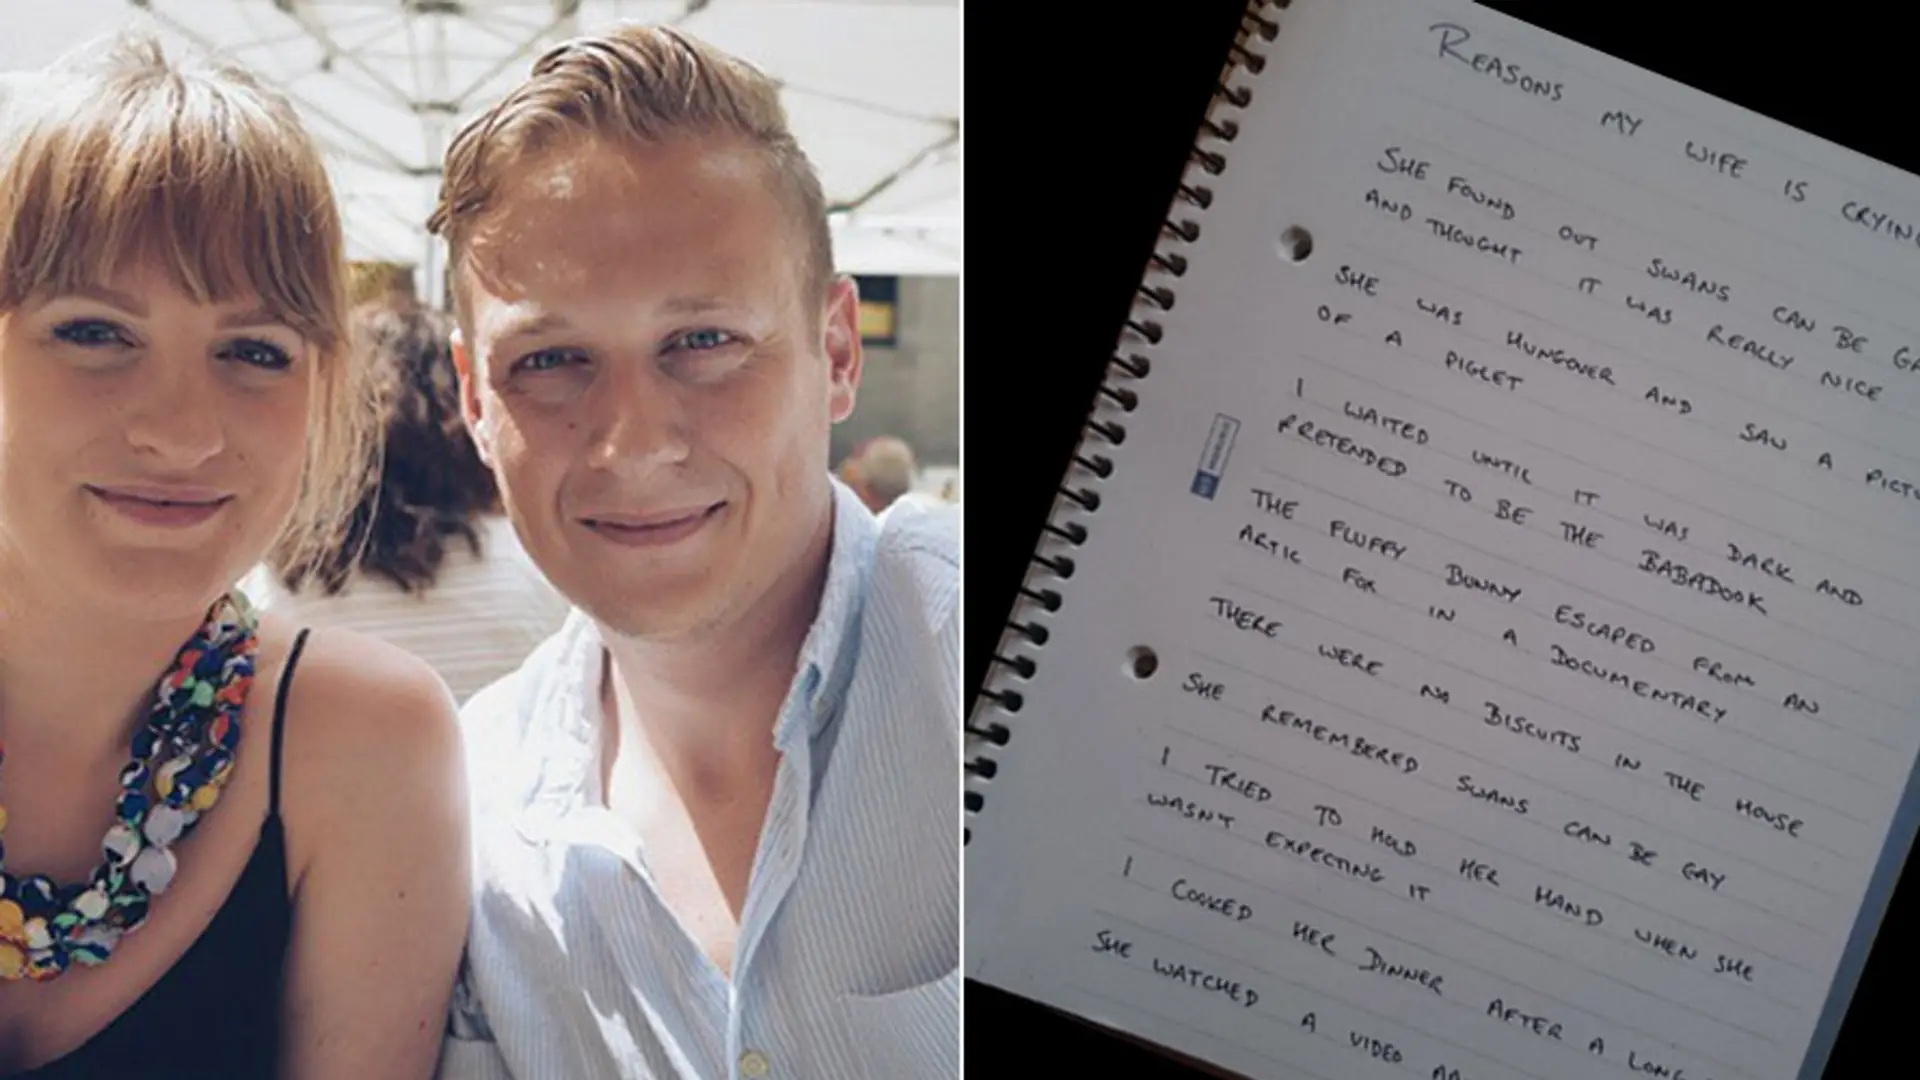 REASONS MY WIFE IS CRYING
SHE FOUND OUT SWANS CAN BE GA
AND THOUGHT IT WAS REALLY NICE
SHE WAS HUNGOVER AND SAW A PICTU
OF A PIGLET
I WAITED UNTIL IT WAS DARK AND
PRETENDED TO BE THE BABADOOK
THE FLUFFY BUNNY ESCAPED FROM AN
ARTIC FOX IN A DOCUMENTARY
THERE WERE NO BISCUITS IN THE HOUSE
SHE REMEMBERED SWANS CAN BE GAY
I TRIED TO HOLD HER HAND WHEN SHE
WASN'T EXPECTING IT
I COOKED HER DINNER AFTER A LONG
SHE WATCHED A VIDEO